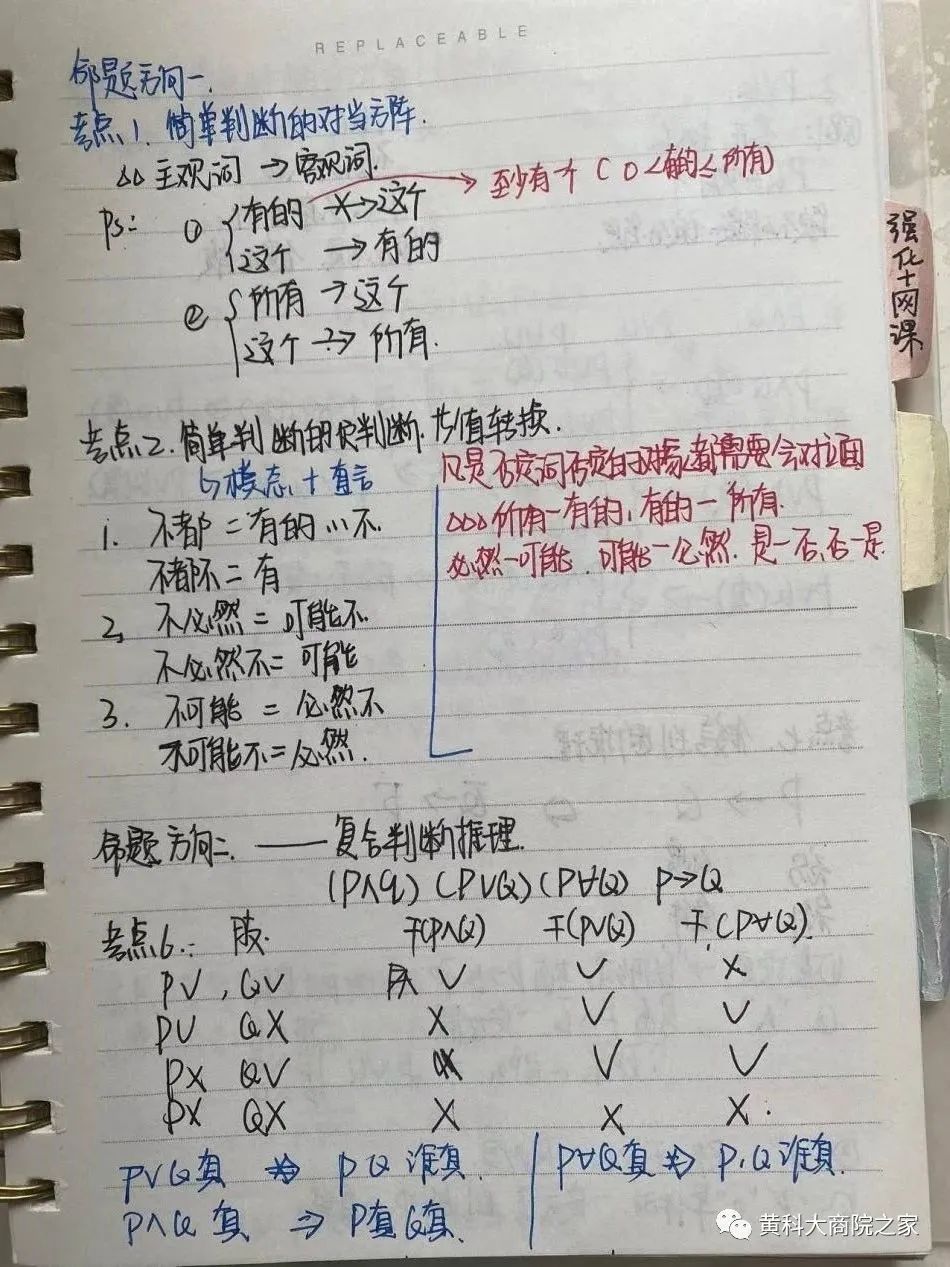 REPLACEABLE
命题方向一.
考点1. 简单判断的对当方阵.
△△ 主观词 → 客观词.
至少有一个 ( 0 < 有的 ≤ 所有)
Ps: ① { 有的 -×→ 这个
这个 → 有的
② { 所有 → 这个
这个 -?→ 所有.
强化+网课
考点2. 简单判断的负判断. 等值转换.
↳ 模态 + 直言
凡是否定词否定的对象都需要会对立面
△△△ 所有—有的, 有的—所有.
必然—可能. 可能—必然. 是—否, 否—是.
1. 不都 = 有的…不.
不都不 = 有
2, 不必然 = 可能不.
不必然不 = 可能
3. 不可能 = 必然不
不可能不 = 必然.
命题方向二. —— 复合判断推理.
(P∧q) (P∨Q) (P∀Q) P→Q
考点6.: 肢. 干(P∧Q) 干(P∨Q) 干.(P∀Q).
P√ , Q√ √ √ ×
P√ Q× × √ √
P× Q√ × √ √
P× Q× × × ×.
P∨Q真 ⇏ P Q 谁真.
P∀Q真 ⇏ P,Q 谁真.
P∧Q 真 ⇒ P真 Q真.
黄科大商院之家